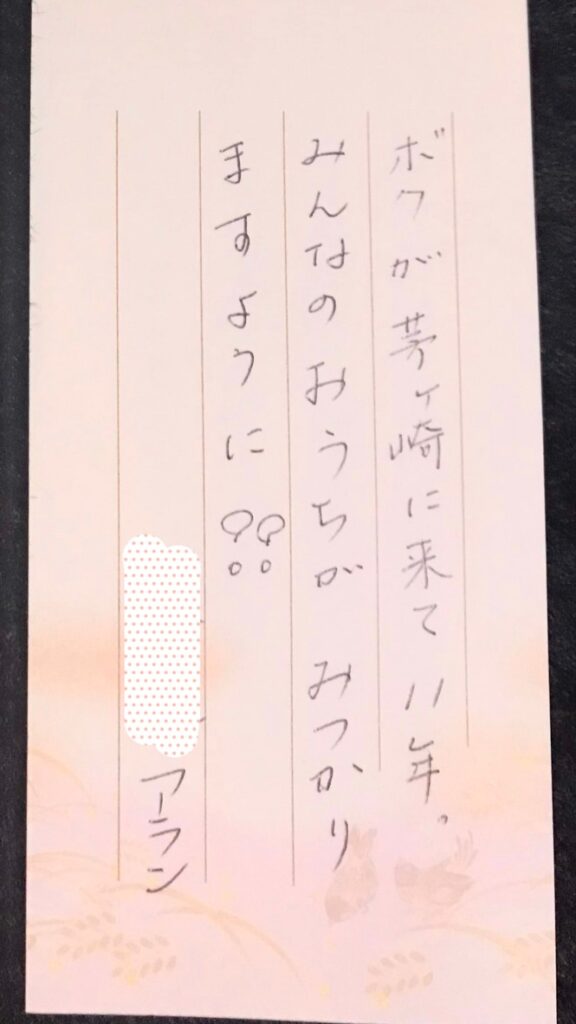 ボクが茅ヶ崎に来て11年。
みんなのおうちが みつかり
ますように!!
アーラン